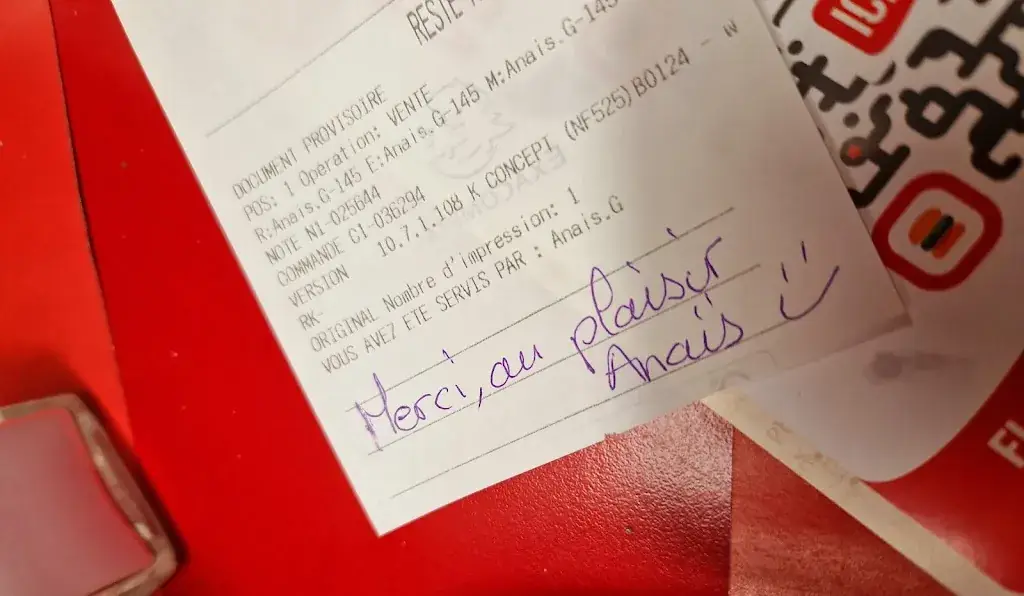 RESTE
DOCUMENT PROVISOIRE
POS: 1 Opération: VENTE
R:Anais.G-145 E:Anais.G-145 M:Anais.G-145
NOTE N1-025644
COMMANDE C1-036294
VERSION 10.7.1.108 K CONCEPT (NF525) B0124 - W
RK-
ORIGINAL Nombre d'impression: 1
VOUS AVEZ ETE SERVIS PAR : Anais.G
Merci, au plaisir
Anaïs
ICI